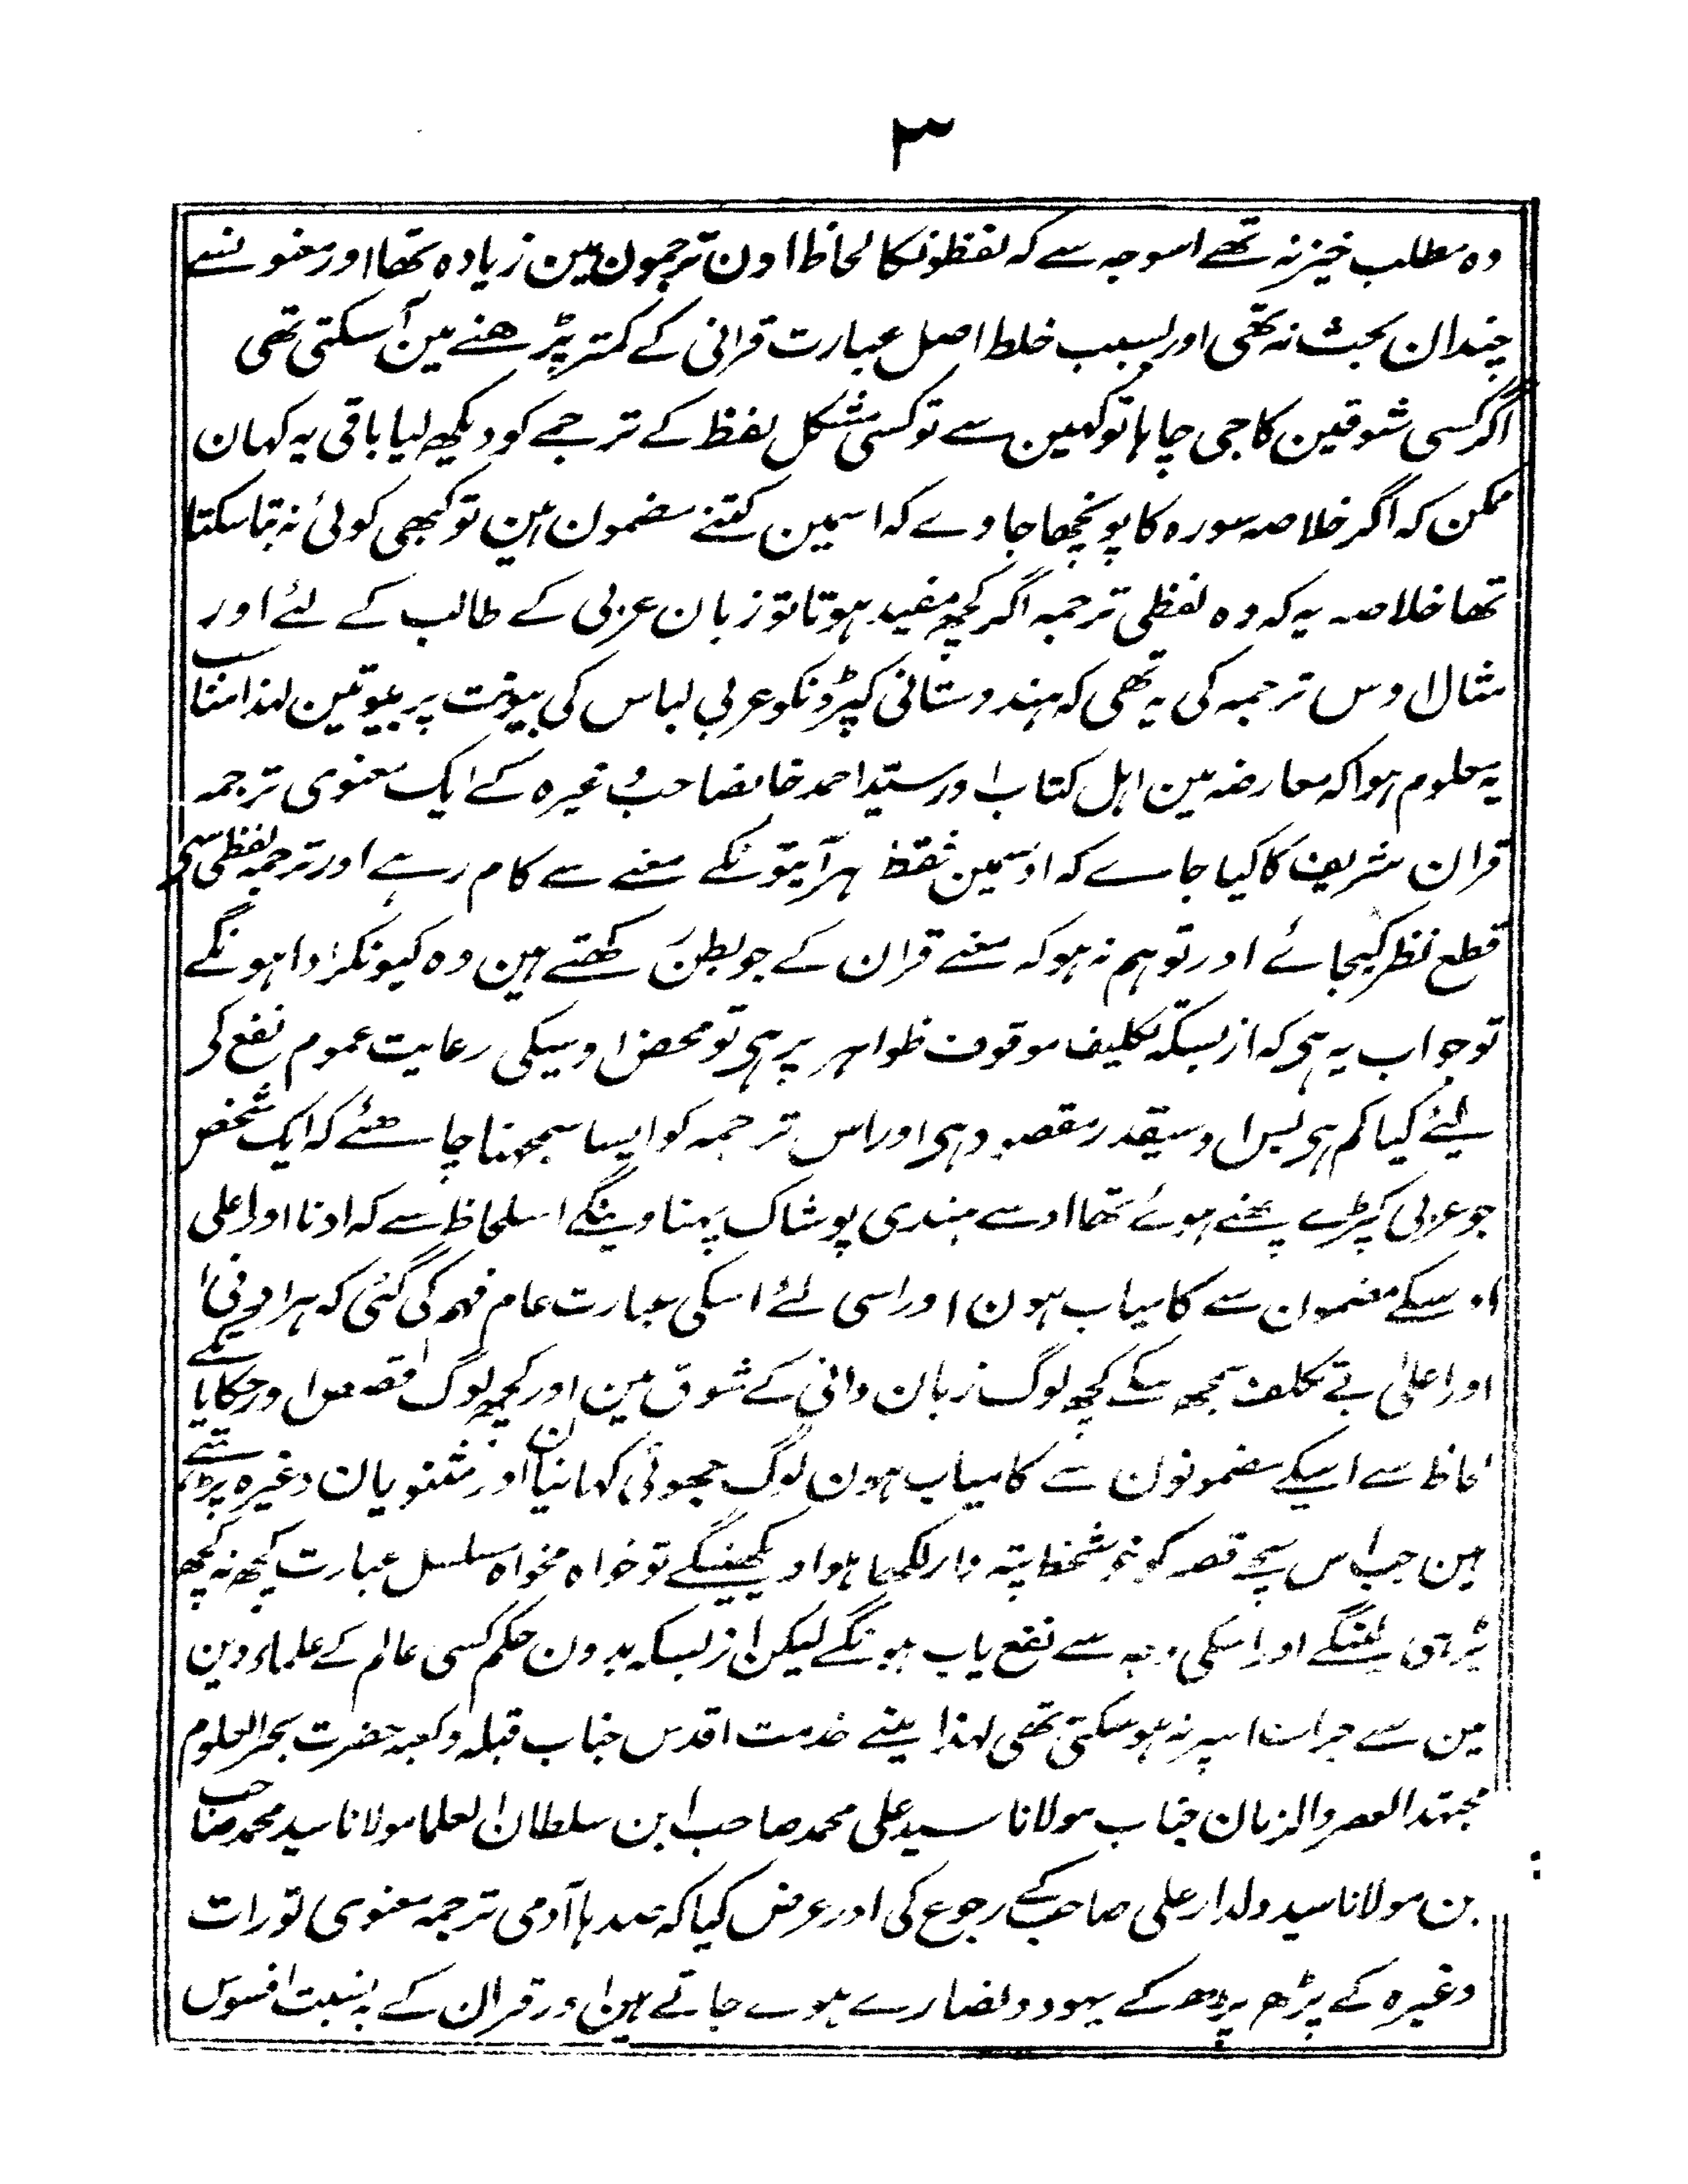 ٣
وہ مطلب خیز نہ تھے اسوجہ سے کہ لفظونکا لحاظ اون ترجمون مین زیادہ تھا اور معنونسے
چندان بحث نہ تھی اور بسبب خلط اصل عبارت قرانی کے کمتر پڑھنے مین آسکتی تھی
اگر کسی شوقین کا جی چاہا تو کہین سے تو کسی مشکل لفظ کے ترجمے کو دیکھ لیا باقی یہ کہان
ممکن کہ اگر خلاصہ سورہ کا پونچھا جاوے کہ اسمین کتنے مضمون ہین تو کبھی کوئی نہ بتا سکتا
تھا خلاصہ یہ کہ وہ لفظی ترجمہ اگر کچھ مفید ہوتا تو زبان عربی کے طالب کے لئے اور
مثال اوس ترجمہ کی یہ تھی کہ ہندوستانی کپڑونکو عربی لباس کی بیونت پر بیوتین لہذا مناسب
یہ معلوم ہوا کہ معارضہ مین اہل کتاب اور سید احمد خانصاحب وغیرہ کے ایک معنوی ترجمہ
قران شریف کا کیا جاے کہ اوسمین فقط ہر آیتونکے معنے سے کام رہے اور ترجمہ لفظی سی
قطع نظر کیجائے اور توہم نہ ہو کہ معنے قران کے جو بطن رکھتے ہین وہ کیونکر ادا ہونگے
تو جواب یہ ہی کہ ازبسکہ تکلیف موقوف ظواہر پر ہی تو محض اوسیکی رعایت عموم نفع کی
لیئے کیا کم ہی بس اوسیقدر مقصود ہی اور اس ترجمہ کو ایسا سمجھنا چاھئے کہ ایک شخص
جو عربی کپڑے پہنے ہوئے تھا اوسے ہندی پوشاک پہنا وینگے اسلحاظ سے کہ ادنا اور اعلی
اوسکے مضمون سے کامیاب ہون اور اسی لئے اسکی عبارت عام فہم کی گئی کہ ہر ادنی
اور اعلی بے تکلف سمجھ سکے کچھ لوگ زبان دانی کے شوق مین اور کچھ لوگ قصص اور حکایا کے
لحاظ سے اسکے مضمونون سے کامیاب ہون لوگ جھوٹی کہانیان اور مثنویان وغیرہ پڑھتے
ہین جب اس سچے قصہ کو خوشخط پتہ وار لکھا ہوا دیکھینگے تو خواہ مخواہ سلسل عبارت کچھ نہ کچھ
پڑھ ہی لینگے اور اسکی وجہ سے نفع یاب ہونگے لیکن ازبسکہ بدون حکم کسی عالم کے علماء دین
مین سے جرات اسپر نہ ہوسکتی تھی لہذا مینے خدمت اقدس جناب قبلہ و کعبہ حضرت بحر العلوم
مجتہد العصر والزمان جناب مولانا سید علی محمد صاحب ابن سلطان العلما مولانا سید محمد صاحب
بن مولانا سید ولدار علی صاحب کے رجوع کی اور عرض کیا کہ صدہا آدمی ترجمہ معنوی تورات
وغیرہ کے پڑھ پڑھ کے یہود و نصارے ہوے جاتے ہین اور قران کے بہ نسبت افسوس